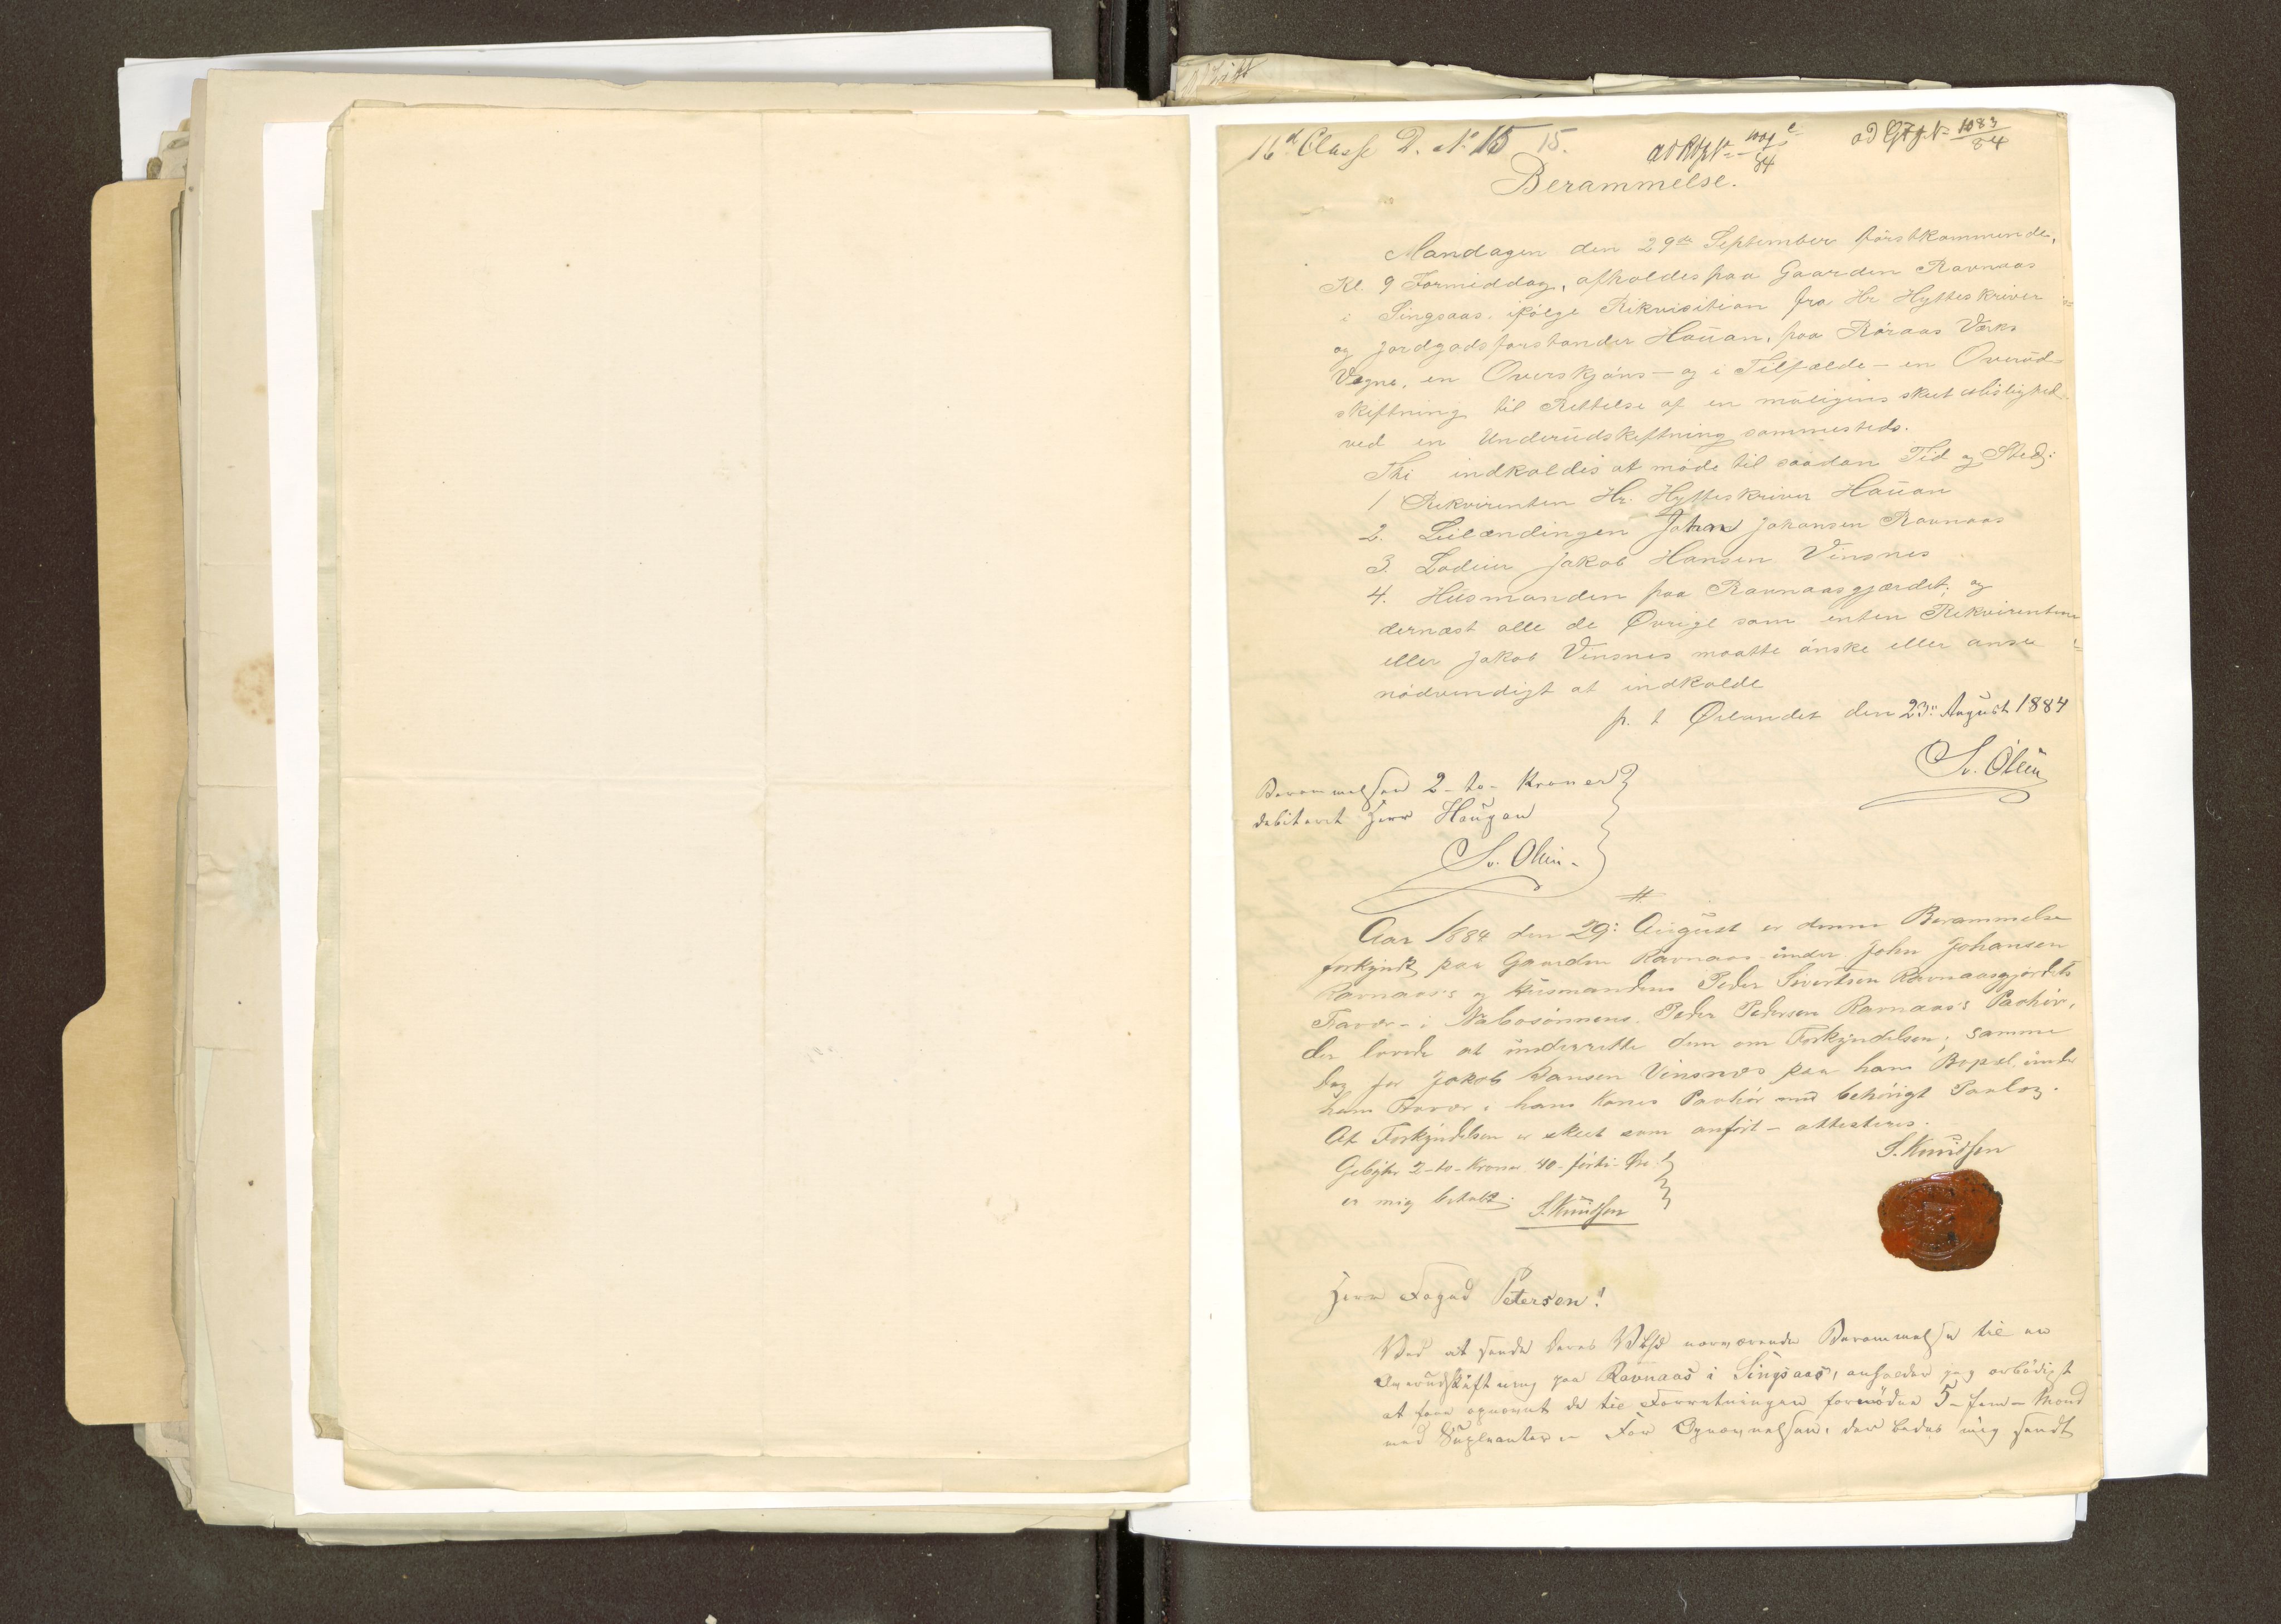 16de Classe D. No 15 15.
ad Gfz No 1083/84
Berammelse.
Mandagen den 29de September förstkommende,
Kl. 9 Formiddag, afholdes paa Gaarden Ravnaas
i Singsaas, ifölge Rikvisition fra Hr Hytteskriver
og Jordgodsforstander Hauan, paa Röraas Værks
Vegne, en Overskjöns- og i Tilfælde - en Overud=
skiftning til Rettelse af en muligens skeet ubilighed
ved en Underudskiftning sammesteds.
Thi indkaldes at möde til saadan Tid og Sted:
1 Rekvirenten Hr. Hytteskriver Hauan
2. Leilændingen John Johansen Ravnaas
3. Lodeier Jakob Hansen Vinsnes
4. Husmanden paa Ravnaasgjærdet; og
dernæst alle de Øvrige som enten Rekvirenten
eller Jakob Vinsnes maatte önske eller anse
nödvendigt at indkalde
p. t Ørlandet den 23de August 1884
Sv. Olein
Berammelsen 2 - to - Kroner
debiteret Herr Haugan
Sv. Olein.
Aar 1884 den 29: August er denne Berammelse
forkyndt paa Gaarden Ravnaas under John Johansen
Ravnaas's og Husmandens Peder Sivertsen Ravnaasgjördets
Fravær - i Nabosönnens Peder Pedersen Ravnaas's Paahör,
der lovede at underrette dem om Forkyndelsen; samme
Dag for Jakob Hansen Vinsnes paa hans Bopæl under
hans Fravær i hans Kones Paahör med behörigt Paalæg.
At Forkyndelsen er skeet som anfört - attesteres.
S. Knudssen
Gebyhr 2 - to - Kroner 40 - förti - Øre
er mig betalt.
S. Knudssen
Herr Foged Petersen!
Ved at sende Deres Velbd nærværende Berammelse til en
Overudskiftning paa Ravnaas i Singsaas, anholder jeg ærbödigst
at faa opnævnt de til Forretningen fornödne 5 - fem - Mænd
med Suppleanter. - For Opnævnelsen, der bedes mig sendt